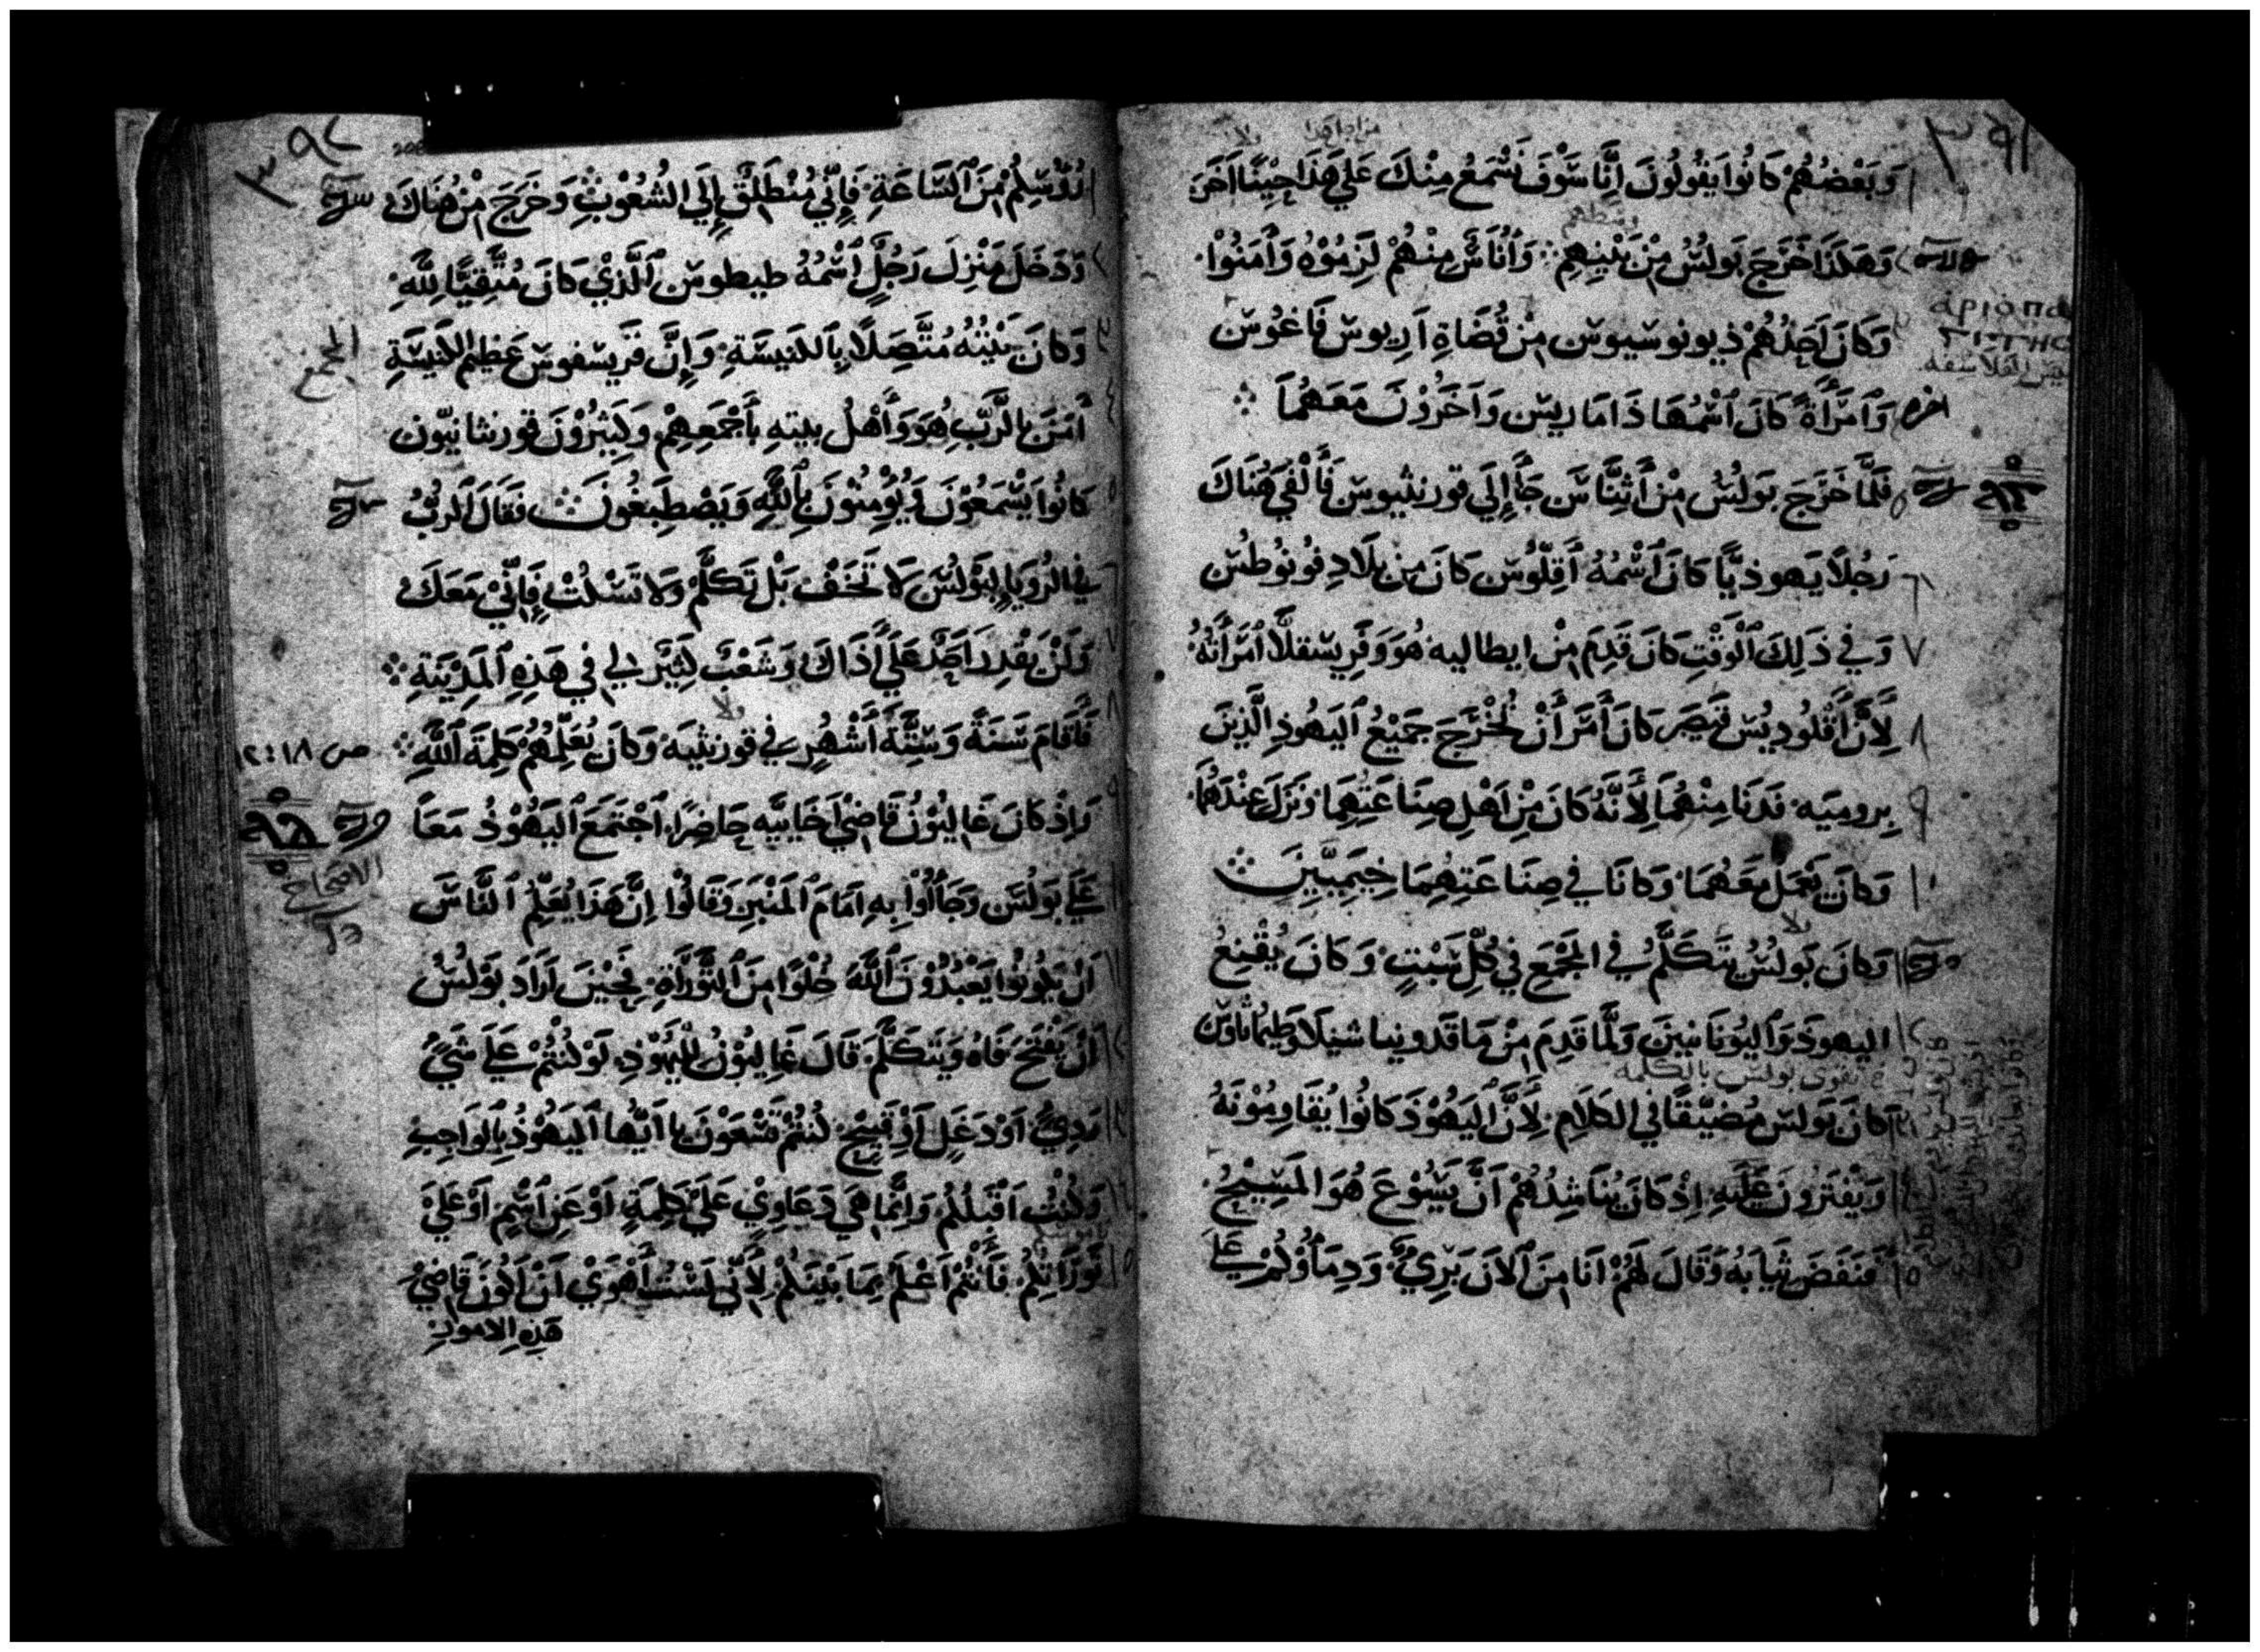 ٣٩١
وَبَعْضُهُمْ كَانُوا يَقُولُونَ اِنَّا سَوْفَ نَسْمَعُ مِنْكَ عَلَي هَذَا حِيْنًا اَخَرَ
وَهَكَذَا خَرَجَ بَولُسُ مِنْ بَيْنِهِم ۞ وَاُنَاسٌ مِنْهُمْ لَزِمُوْهُ وَاَمَنُوْا
وَكَانَ اَحَدُهُمْ ذيونوسيوس مِنْ قُضَاةِ اَرِيوس فَاغُوْس
وَامْرَأَةً كَانَ اسْمُهَا ذَامَاريس وَاَخَرُوْنَ مَعَهُمَا ۞
فَلَمَّا خَرَجَ بَولُسُ مِنْ أَثِنَّاسَ جَاَ إِلَي قورنثيوس فَأَلْفَي هُنَاكَ
رَجُلاً يَهوذيًّا كَانَ اَسْمُهُ أَقِلّوُس كَانَ مِن بِلَادِ فُونُوطُس
وَفِي ذَلِكَ الْوَقْتِ كَانَ قَدِمَ مِنْ ايطاليه هُوَ وَفَرِيسْقلَّا امْرَأَتُهُ
لِأَنَّ أَقْلُودِيُس قَيْصَر كَانَ أَمَرَ أَنْ تُخْرَجَ جَمِيْعُ اَليَهُوذِ الَّذِينَ
بِروميَه فَدَنَا مِنْهُمَا لِأَنَّهُ كَانَ مِنْ اَهْلِ صِنَاعَتِهِمَا وَنَزَلَ عِنْدَهُمَا
وَكَانَ يَعْمَل مَعَهُمَا وَكَانَا فِي صِنَاعَتِهِمَا خِيَمِيّيِنَ ۞
وَكَانَ بَولُسُ يَتَكَلَّمُ فِي الْمَجْمَعِ فِي كُلِّ سَبْتٍ وَكَانَ يُقْنِعُ
اليهوذَ وَاليُونَانيينَ وَلَمَّا قَدِمَ مِنْ مَاقَدونيا شيلَا وَطِيمَاثاوس
كَانَ بَولس مُضَيَّقًا فِي الكَلَامِ لِأَنَّ اليَهُوْذَ كَانُوا يُقَاوِمُوْنَهُ
وَيَفْتَرُونَ عَلَيْهِ اِذْ كَانَ يُنَاشِدُهُمْ اَنَّ يَسُوْعَ هُوَ المَسِيْحُ
فَنَفَضَ ثِيَابَهُ وَقَالَ لَهُمْ اَنَا مِنَ اَلاَنَ بَرِيٌ وَدِمَاؤُكُمْ عَلَي
٣٩٢
رُؤُوسِكُمْ مِنَ السَّاعَةِ فَإِنِّي مُنْطَلِقٌ إِلَي الشُّعُوْبِ ۞ وَخَرَجَ مِنْ هُنَاكَ
وَدَخَلَ مَنْزِلَ رَجُلٍ اسْمُهُ طيطوس الَّذِيْ كَانَ مُتَّقِيًا لِلَّهِ
وَكَانَ بَيْتُهُ مُتَّصِلًا بِالكَنِيسَةِ وَإِنَّ قَرِيسْفوس عَظِيْمَ الكَنِيسَةِ
أَمَنَ بِالرَّبِّ هُوَ وَأَهْلُ بيتهِ بأَجْمَعِهِمْ وَكَثِيْرُوْنَ قورنثانيّون
كَانُوا يَسْمَعُوْنَ وَيُؤْمِنُوْنَ بِاللَّهِ وَيَصْطَبِغُونَ ۞ فَقَالَ الرَبُّ
فِي الرُؤيَا لِبَوْلُسَ لَا تَخَفْ بَلْ تَكَلَّمْ وَلَا تَسْكُتْ فَإِنِّيْ مَعَكَ
وَلَنْ يَقْدِرَ اَحَدٌ عَلَي أَذَاكَ وَشَعْبٌ كَثِيْرٌ لِي فِي هَذِهِ الْمَدِيْنَةِ ۞
فَأَقَامَ سَنَةً وَسِتَّةَ أَشْهُرٍ فِي قورنثيَه وَكَانَ يُعَلِّمُهُمْ كَلِمَةَ اللَّهِ ۞
ص ١٨ : ١٢
وَاِذْ كَانَ غَاليُوْنُ قَاضِيَ اَخَائِيَّه حَاضِرًا، اَجْتَمَعَ اليَهُوْذُ مَعًا
عَلَي بَولُسَ وَجَاَؤُا بِهِ اَمَامَ الْمَنْبَرِ وَقَالُوْا اِنَّ هَذَا يُعَلِّمُ النَّاسَ
اَنْ يَكُوْنُوا يَعْبُدُوْنَ اللَّهَ خُلْوًا مِنَ التَّوْرَاةِ فَحِيْنَ اَرَادَ بَوْلُسُ
اَنْ يَفْتَحَ فَاهُ وَيَتَكَلَّمَ قَالَ غَاليُوْنُ لِلْيَهُوْذِ لَوْ كُنْتُمْ عَلَي شَيْءٍ
رَدِيٍّ اَوْ دَغَلٍ اَوْ قَبِيْحٍ كُنْتُمْ تَسْعَوْنَ يا اَيُّها اليَهُوْذُ بِالوَاجِبِ
وَكُنْتُ اَقْبَلُكُمْ وَاِنَّمَا هِيَ دَعَاوِيْ عَلَي كَلِمَةٍ اَوْ عَنِ اسْمٍ اَوْ عَلَي
تَوْرَاتِكُمْ فَأَنْتُمْ اَعْلَمُ بِمَا بَيْنَكُمْ لِأَنِّي لَسْتُ أَهْوَيْ اَنْ اَكُوْنَ قَاضِيَ
هَذِهِ الامور